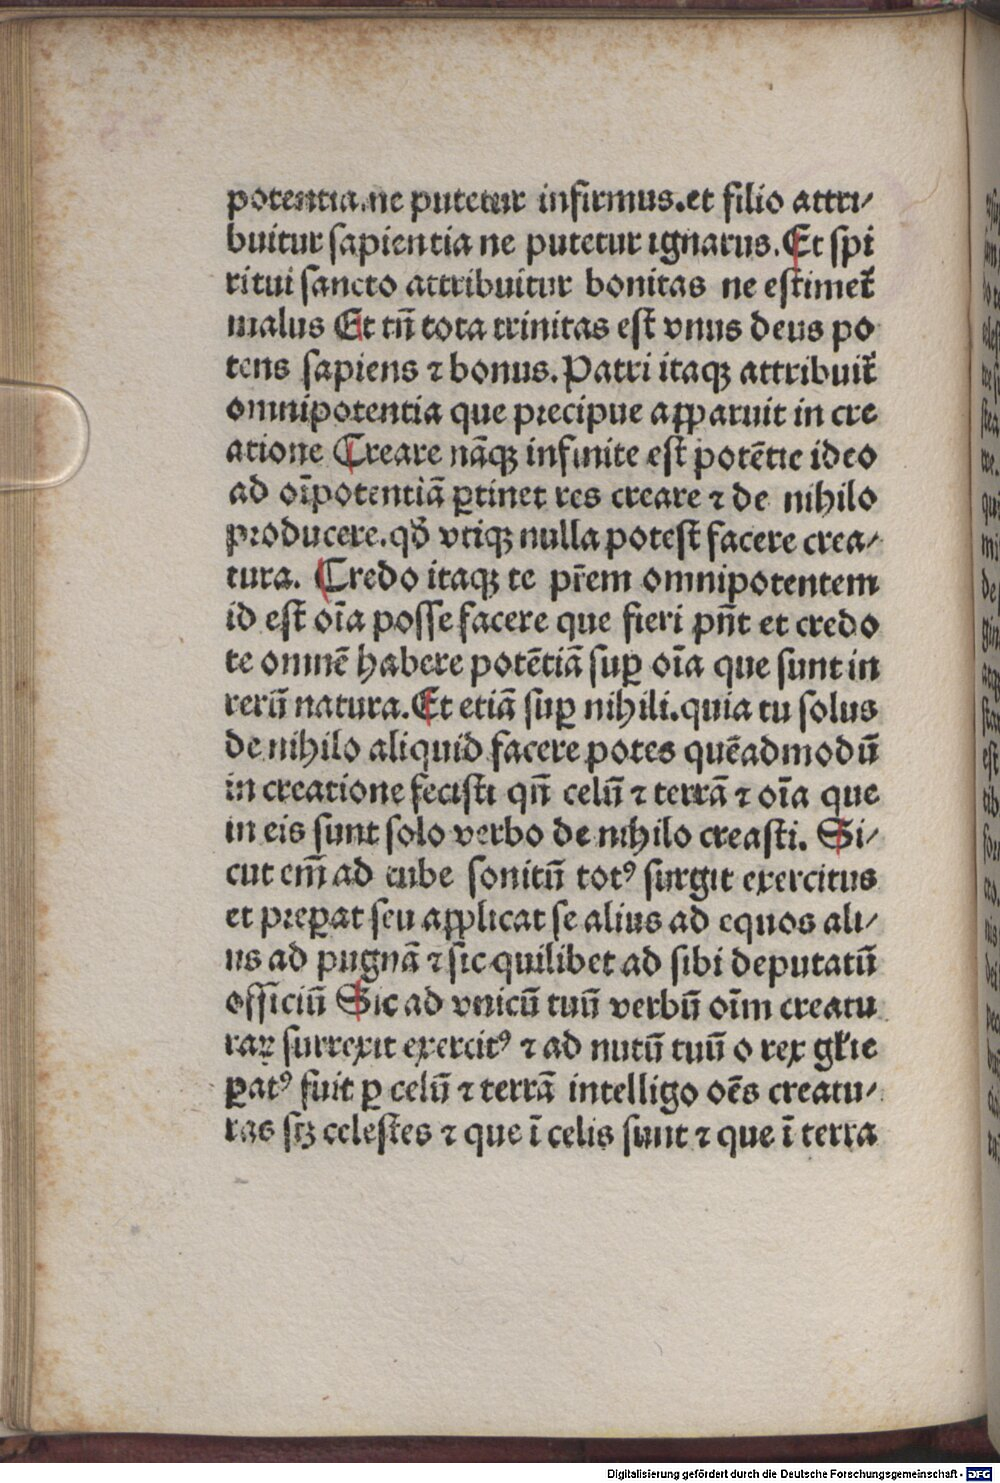 potentia.ne putetur infirmus.et filio attri/
buitur sapientia ne putetur ignarus. Et spi
ritui sancto attribuitur bonitas ne estimet᷑
malus Et tn̄ tota trinitas est vnus deus po
tens sapiens ⁊ bonus. Patri itaqꝫ attribuit᷑
omnipotentia que precipue apparuit in cre
atione Creare nāqꝫ infinite est potētie ideo
ad oīpotentiā ꝑtinet res creare ⁊ de nihilo
producere.qđ vtiqꝫ nulla potest facere crea/
tura. Credo itaqꝫ te pr̄em omnipotentem
id est oīa posse facere que fieri pn̄t et credo
te omnē habere potētiā suꝑ oīa que sunt in
rerū natura. Et etiā suꝑ nihili.quia tu solus
de nihilo aliquid facere potes quēadmodū
in creatione fecisti qn̄ celū ⁊ terrā ⁊ oīa que
in eis sunt solo verbo de nihilo creasti. Si/
cut em̄ ad tube sonitū totꝰ surgit exercitus
et preꝑat seu applicat se alius ad equos ali/
us ad pugnā ⁊ sic quilibet ad sibi deputatū
officiū Sic ad vnicū tuū verbū oīm creatu
raꝝ surrexit exercitꝰ ⁊ ad nutū tuū o rex gl̄ie
ꝑatꝰ fuit ꝑ celū ⁊ terrā intelligo oēs creatu/
ras sꝫ celestes ⁊ que ī celis sunt ⁊ que ī terra
Digitalisierung gefördert durch die Deutsche Forschungsgemeinschaft - DFG